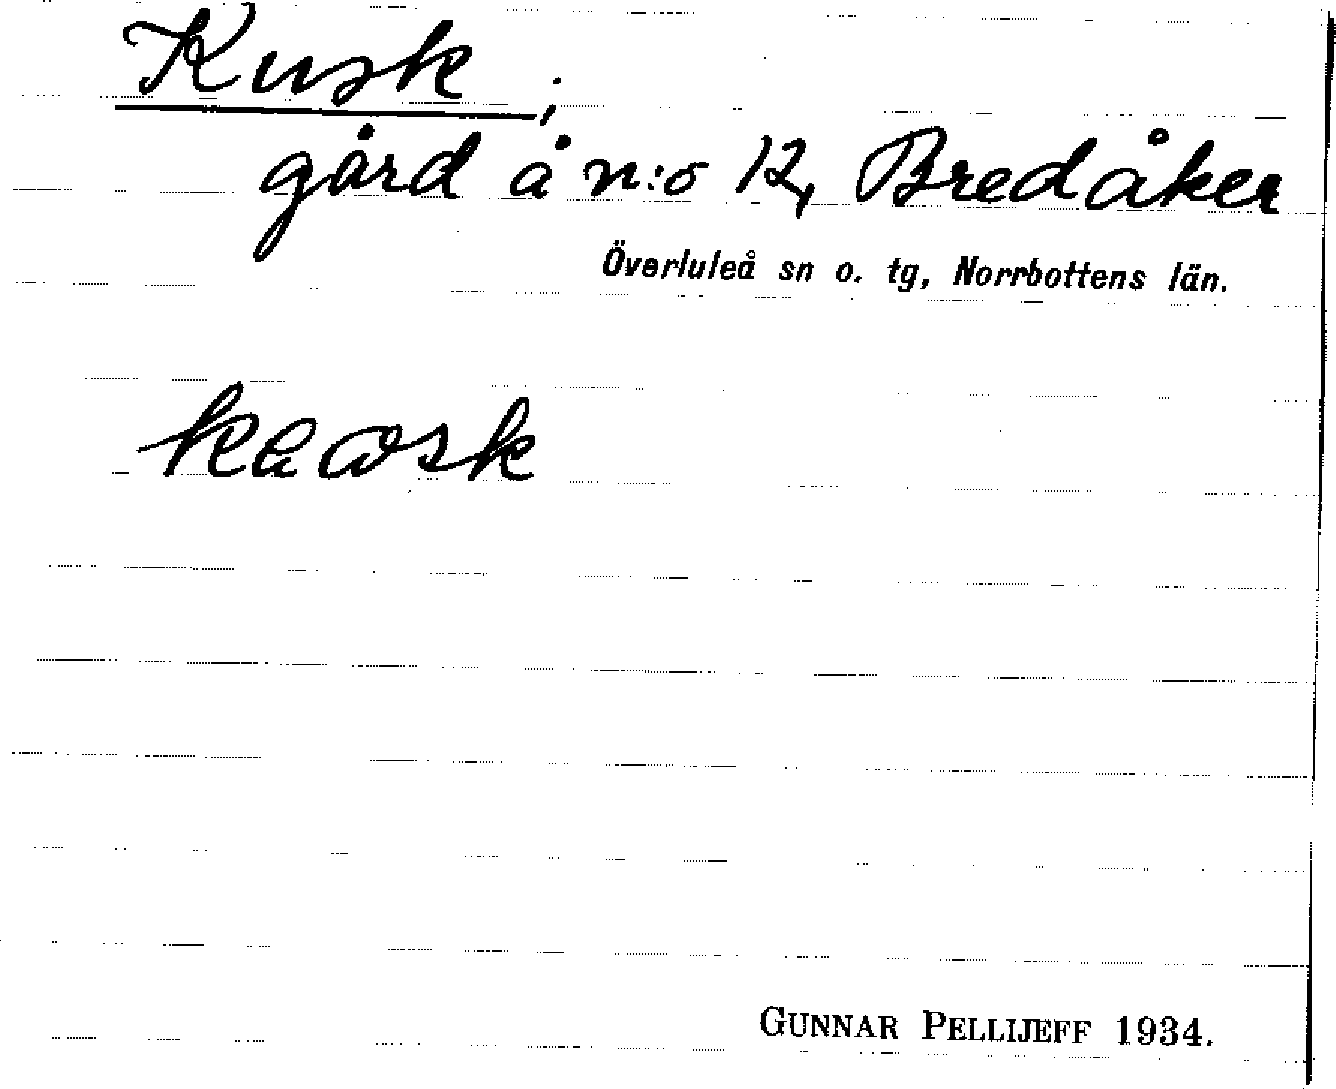 Kusk;
gård å n:o 12, Bredåker
Överluleå sn o. tg, Norrbottens län.
GUNNAR PELLIJEFF 1934.